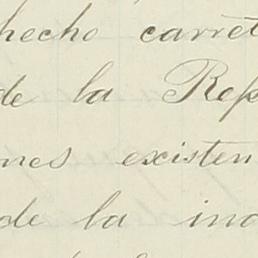 hecho carret
de la Rep
nes existen
de la ind